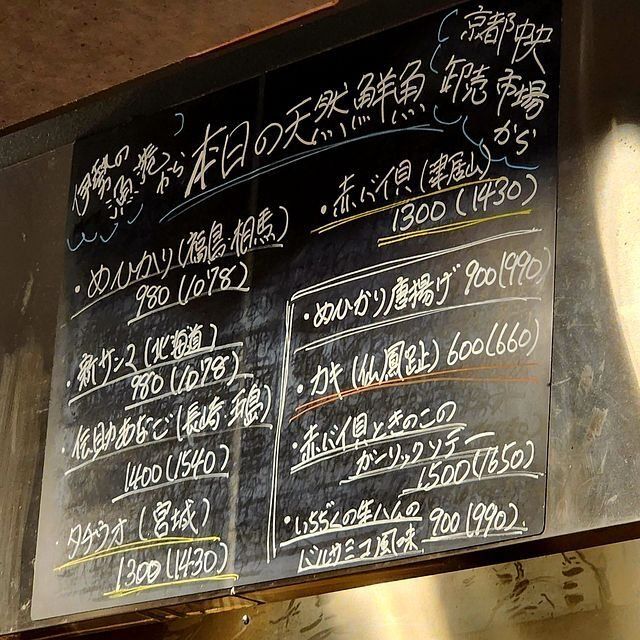 京都中央
卸売市場
から
本日の天然鮮魚
から
・めひかり(福島・相馬)
980(1078)
・新サンマ(北海道)
980(1078)
・伝助あなご(長崎・五島)
1400(1540)
・タチウオ(宮城)
1300(1430)
・赤バイ貝(津居山)
1300(1430)
・めひかり唐揚げ 900(990)
・カキ(仏鳳趾)600(660)
・赤バイ貝ときのこの
ガーリックソテー
1500(1650)
・いちぢくの生ハムの
バルサミコ風味 900(990)